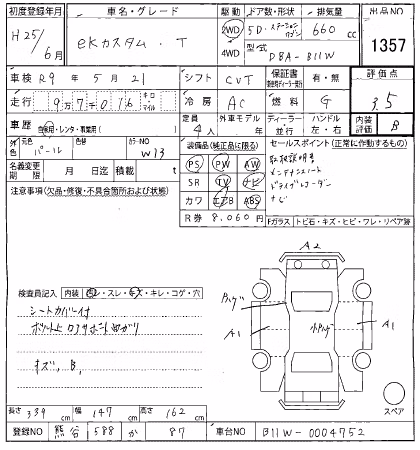 初度登録年月 車名・グレード 駆動 ドア数・形状 排気量 出品NO
H25/6月 eKカスタム . T 2WD 4WD 5D.ステーションワゴン 660cc 1357
型式 DBA-B11W
車検 R9年 5月 21 シフト CVT 保証書 有・無 評価点
走行 97016 キロ マイル 冷房 AC 燃料 G 3.5
車歴 自家用・レンタ・事業用( ) 定員 4人 外車モデル 年 ディーラー 並行 ハンドル 左・右 内装評価 B
外色 元色 パール 色替 カラーNO W13
装備品(純正品に限る) セールスポイント(正常に作動するもの)
名義変更期限 月 日迄 積載 t
PS PW AW 取扱説明書
SR TV ナビ メンテナンスノート
カワ エアB ABS ドライブレコーダー
ナビ
注意事項(欠品・修復・不具合箇所および状態)
R券 8,060円 Fガラス トビ石・キズ・ヒビ・ワレ・リペア跡
A2
検査員記入 内装 ・スレ・キズ・キレ・コゲ・穴
シートカバー付
A1
A1
キズ, B,
スペア
長さ 339cm 幅 147cm 高さ 162cm
登録NO 熊谷 588 か 87 車台NO B11W-0004752